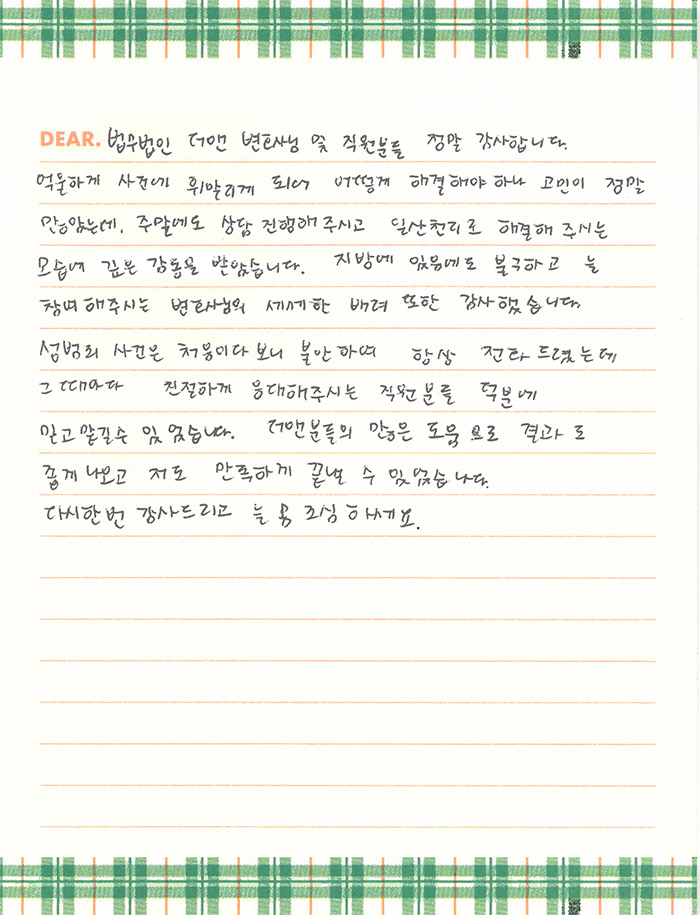 DEAR. 법무법인 더앤 변호사님 및 직원분들 정말 감사합니다.
억울하게 사건에 휘말리게 되어 어떻게 해결해야하나 고민이 정말
많았는데, 주말에도 상담 진행해주시고 일산천리로 해결해 주시는
모습에 깊은 감동을 받았습니다. 지방에 있음에도 불구하고 늘
참여해주시는 변호사님의 세세한 배려 또한 감사했습니다.
성범죄 사건은 처음이다보니 불안하여 항상 전화드렸는데
그때마다 친절하게 응대해주시는 직원분들 덕분에
믿고 맡길수 있었습니다. 더앤분들의 많은 도움으로 결과도
좋게나오고 저도 만족하게 끝낼 수 있었습니다.
다시한번 감사드리고 늘 몸 조심하세요.